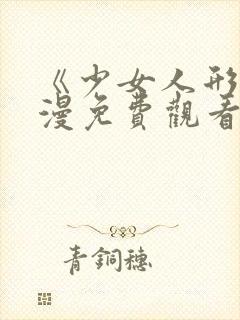 《少女人形
漫免費觀看
青銅穗